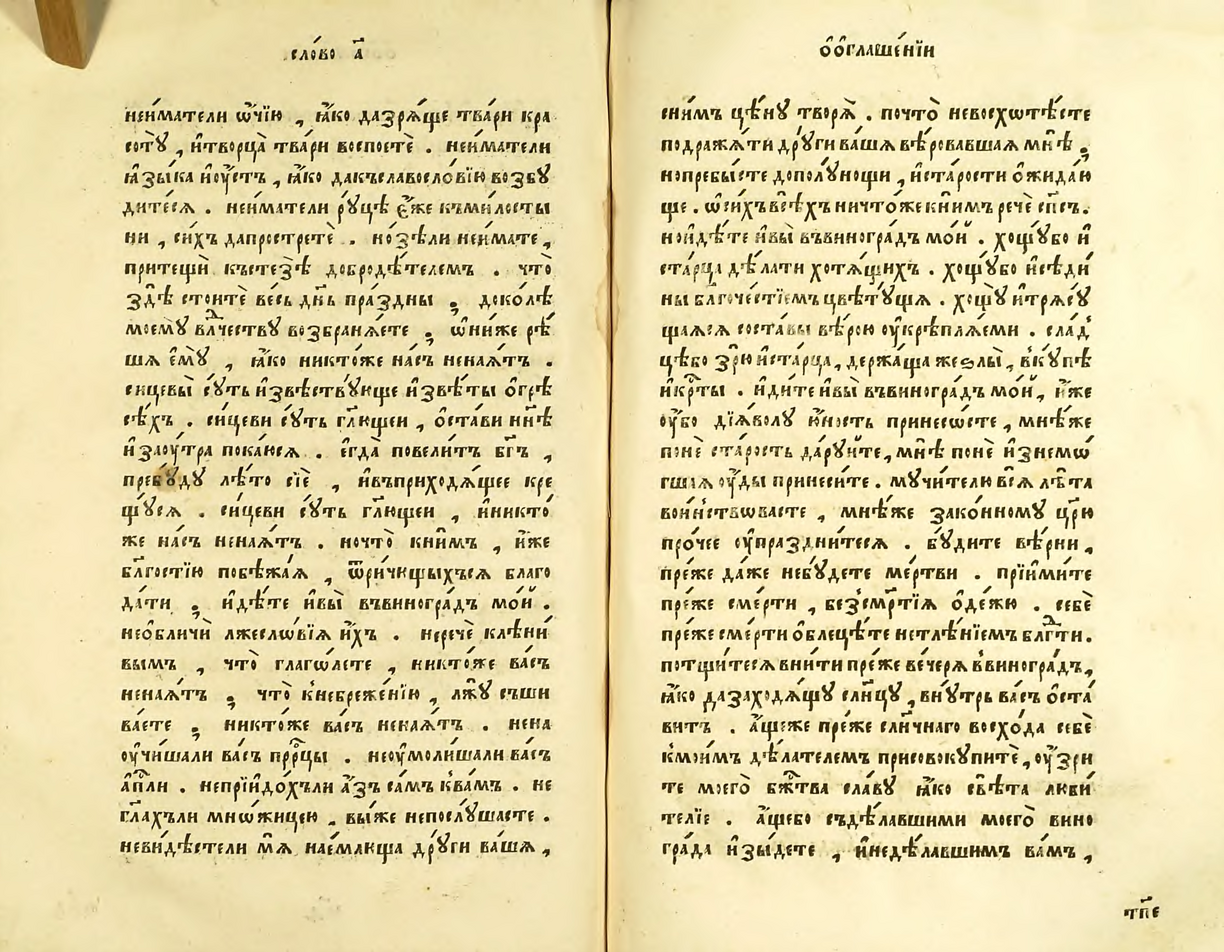 сло́во а҃
неи́матели ѡ҆чїю̀ , ꙗ҆́ко дазрѧ́ще тва́ри кра
сотꙋ̀ , и҆творца̀ тва́ри воспоетѐ . неи́матели
ꙗ҆зы́ка и҆оу҆́стъ , ꙗ҆́ко дакъславосло́вїю возбꙋ
дитесѧ . неи́матели рꙋ́цѣ є҆́же къми́лосты
ни , си́хъ дапростретѐ . но́зѣли неи́мате ,
притещѝ къстезѣ̀ добродѣ́телемъ . что̀
здѣ̀ стоитѐ ве́сь дн҃ь пра́здны ; доко́лѣ
моемꙋ̀ влⷣчествꙋ возбранѧ́ете , ѡ҆ни́же рѣ
шѧ є҆мꙋ̀ , ꙗ҆́ко никто́же на́съ ненаѧ́тъ .
сицевы̀ сꙋ́ть и҆звѣ́ствꙋюще и҆звѣ́ты о҆грѣ
сѣ́хъ . си́цеви сꙋ́ть гл҃ющеи , ѡ҆ста́ви нн҃ѣ
и҆заоу́тра пока́юсѧ . є҆гда̀ повели́тъ бг҃ъ ,
пребꙋ́дꙋ лѣ́то сїѐ , и҆въприходѧ́щее кре
щꙋ́сѧ . си́цеви сꙋ́ть гл҃ющеи , и҆никто́
же на́съ ненаѧ́тъ . ночто̀ кни́мъ , и҆́же
бл҃гостїю побѣжа́ѧ , ѿричю́щыхъсѧ благо
да́ти ; и҆дѣ́те и҆вы̀ въвиногра́дъ мо́и .
необличѝ лжесло́вїѧ и҆́хъ . неречѐ клѣни́
вымъ , что̀ глаго́лете , никто́же ва́съ
ненаѧ́тъ ; что̀ кнебреже́нїю , лжꙋ̀ съши
ва́ете ; никто́же ва́съ ненаѧ́тъ . нена
оу҆чи́шали ва́съ прⷪ҇рцы . неоу҆моли́шали ва́съ
а҆пⷭ҇ли . непрїидо́хъли а҆́зъ са́мъ ква́мъ . не
гл҃ахъли мно́жицею , вы́же непослꙋ́шаете .
невидѣ́стели мѧ̀ нае́млюща дрꙋ́ги ва́шѧ ,
о҆о҆глаше́нїи
сни́мъ цѣ́нꙋ творѧ̀ . почто̀ невосхотѣ́сте
подража́ти дрꙋ́ги ва́шѧ вѣ́ровавшаѧ мнѣ̀ ;
нопребы́сте дополꙋ́нощи , и҆ста́рости ѡ҆жида́ю
ще . ѡ҆си́хъ всѣ́хъ ничто́же кни́мъ речѐ сп҃съ .
ноидѣ́те и҆вы̀ въвиногра́дъ мо́и . хощꙋ́бо и҆
ста́рца дѣ́лати хотѧ́щихъ . хощꙋ́бо и҆сѣди
ны бл҃гоче́стїемъ цвѣтꙋ́щѧ . хощꙋ̀ и҆трѧсꙋ́
щаѧсѧ соста́вы вѣ́рою оу҆крѣплѧ́еми . сла́д
цѣбо зрю̀ и҆ста́рца , держа́ща жезлы̀ , вкꙋ́пѣ
и҆крⷭ҇ты . и҆ди́те и҆вы̀ въвиногра́дъ мо́и , и҆́же
оу҆́бо дїѧ́волꙋ ю҆́ность принесо́сте , мнѣ́же
понѐ ста́рость дарꙋ́ите , мнѣ̀ понѐ и҆знемо́
гшаѧ оу҆́ды принеси́те . мꙋчи́телю всѧ̀ лѣ́та
во́инствовасте , мнѣ́же зако́нномꙋ цр҃ю
про́чее оу҆праздни́тесѧ . бꙋ́дите вѣ́рни ,
пре́же да́же небꙋ́дете ме́ртви . прїими́те
пре́же сме́рти , безсмр҃тїѧ ѡ҆де́жю . себѐ
пре́же сме́рти ѡ҆блецѣ́те нетлѣ́нїемъ блгⷣти .
потщи́тесѧ вни́ти пре́же ве́черѧ ввиногра́дъ ,
ꙗ҆́ко дазаходѧ́щꙋ сл҃нцꙋ , внꙋ́трь ва́съ ѡ҆ста́
витъ . а҆́щеже пре́же сл҃ичнаго восхо́да себѐ
кмои́мъ дѣ́лателем присовокупитѐ , оу҆́зри
те моего̀ бж҃тва сла́вꙋ ꙗ҆́ко свѣ́та люби́
телїе . а҆́щебо съдѣ́лавшими моего̀ вино
гра́да и҆зы́дете , и҆недѣ́лавшимъ ва́мъ ,
тп҃е